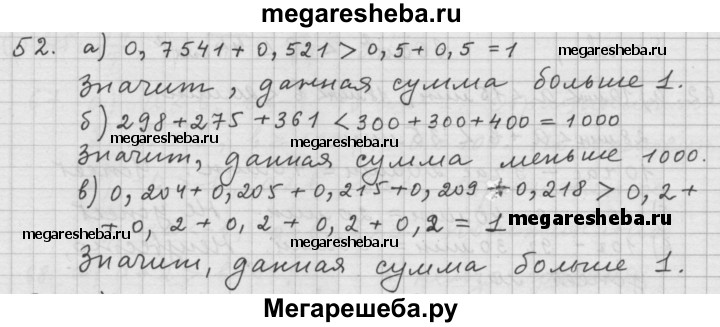 megaresheba.ru
52. а) 0,7541 + 0,521 > 0,5 + 0,5 = 1
megaresheba.ru
megaresheba.ru
Значит, данная сумма больше 1.
б) 298 + 275 + 361 < 300 + 300 + 400 = 1000
megaresheba.ru
megaresheba.ru
Значит, данная сумма меньше 1000.
в) 0,204 + 0,205 + 0,215 + 0,209 + 0,218 > 0,2 +
+ 0,2 + 0,2 + 0,2 + 0,2 = 1
megaresheba.ru
megaresheba.ru
megaresheba.ru
Значит, данная сумма больше 1.
Мегарешеба.ру